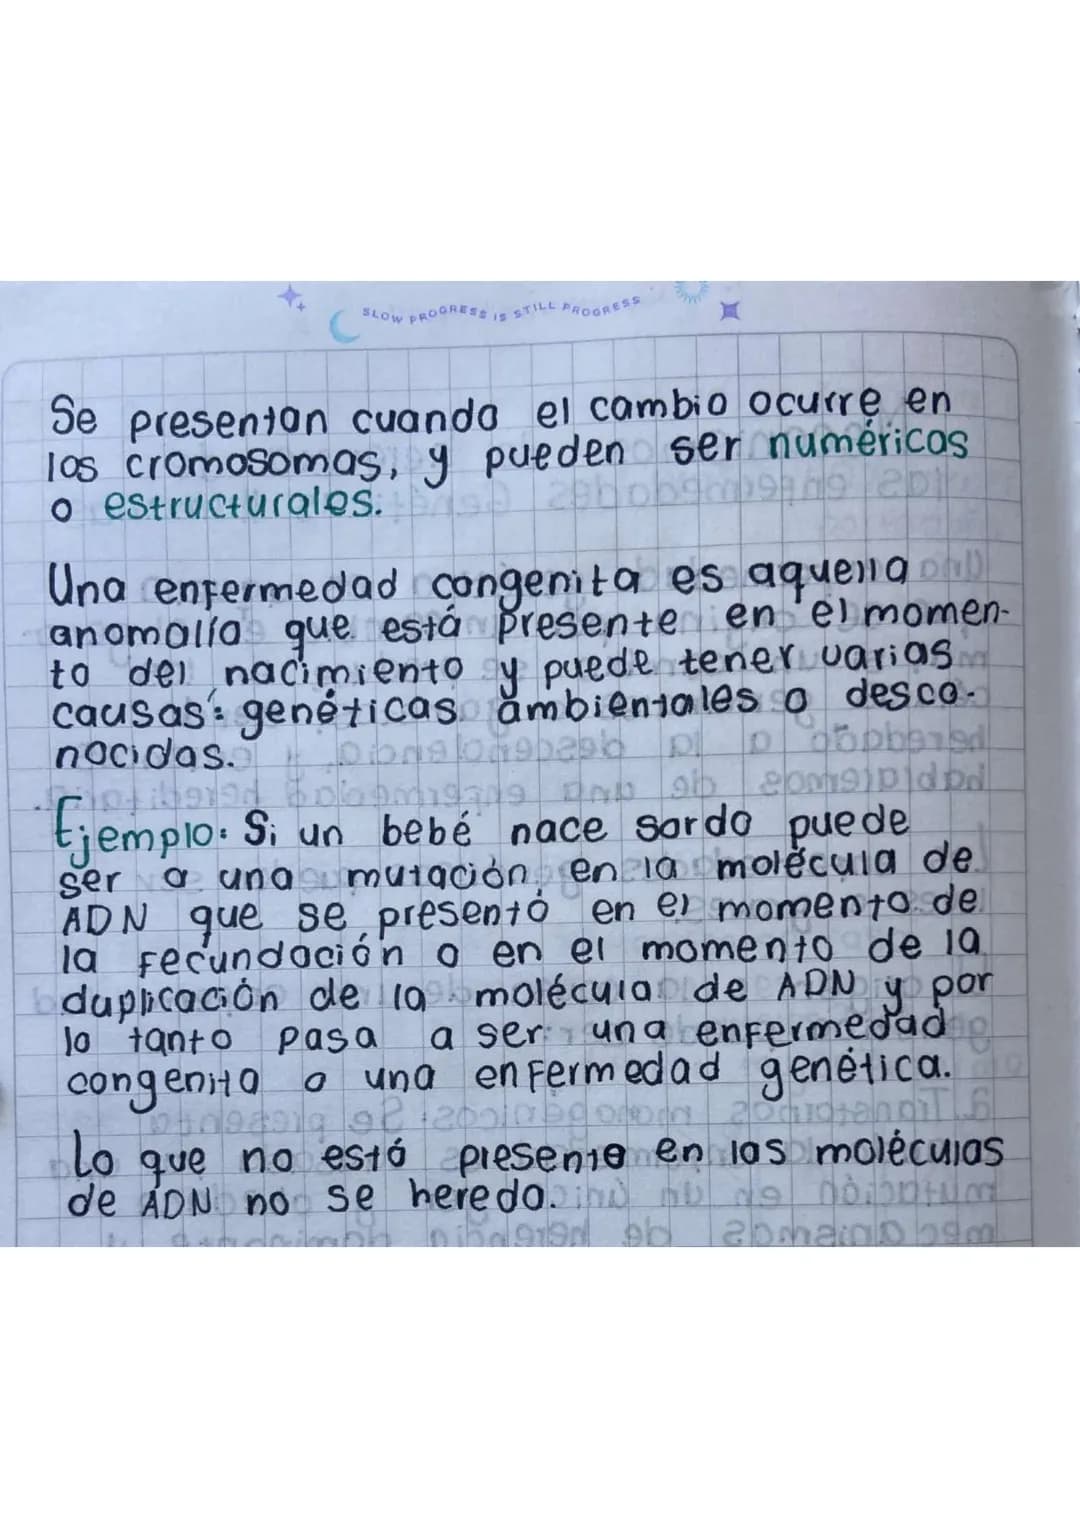 SLOW PROGRESS IS STILL PROGRESS
Se presentan cuando el cambio ocurre en
los cromosomas, y pueden ser numéricos
o estructurales.
Una enfermedad congenita es aquella
anomalía que está presente en el momen-
to del nacimiento y puede tener varias
causas: genéticas ambientales o desco-
nocidas.
Ejemplo: Si un bebé nace sordo puede
ser a una mutación en la molécula de
ADN que se presentó en el momento de
la fecundación o en el momento de la
duplicación de la molécula de ADN y por
lo tanto pasa a ser una enfermedad
congenita o una enfermedad genética.
Lo que no está presente en las moléculas
de ADN no se hereda.